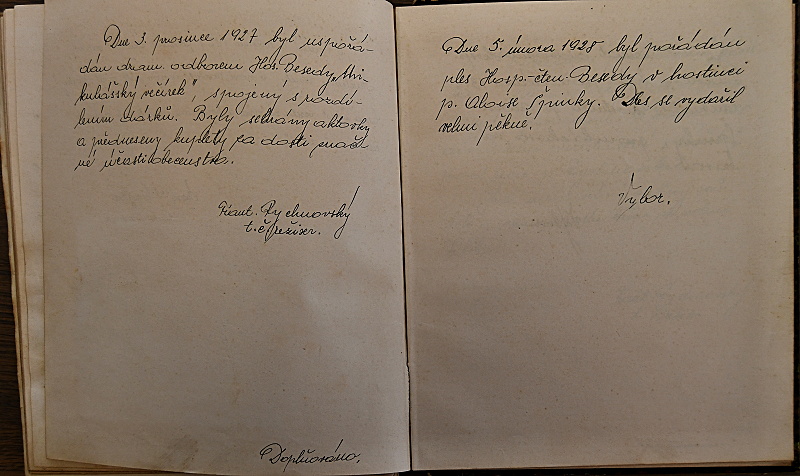 Dne 3. prosince 1927 byl uspořá-
dán dram. odborem Hos. Besedy „Mi-
kulášský večírek", spojený s rozdí-
lením dárků. Byly sehrány aktovky
a předneseny kuplety za dosti znač-
né účasti obecenstva.
Frant. Rychnovský
t. č. režiser.
Doplňováno.
Dne 5. února 1928 byl pořádán
ples Hosp.-čten. Besedy v hostinci
p. Aloise Špinky. Ples se vydařil
velmi pěkně.
Výbor.